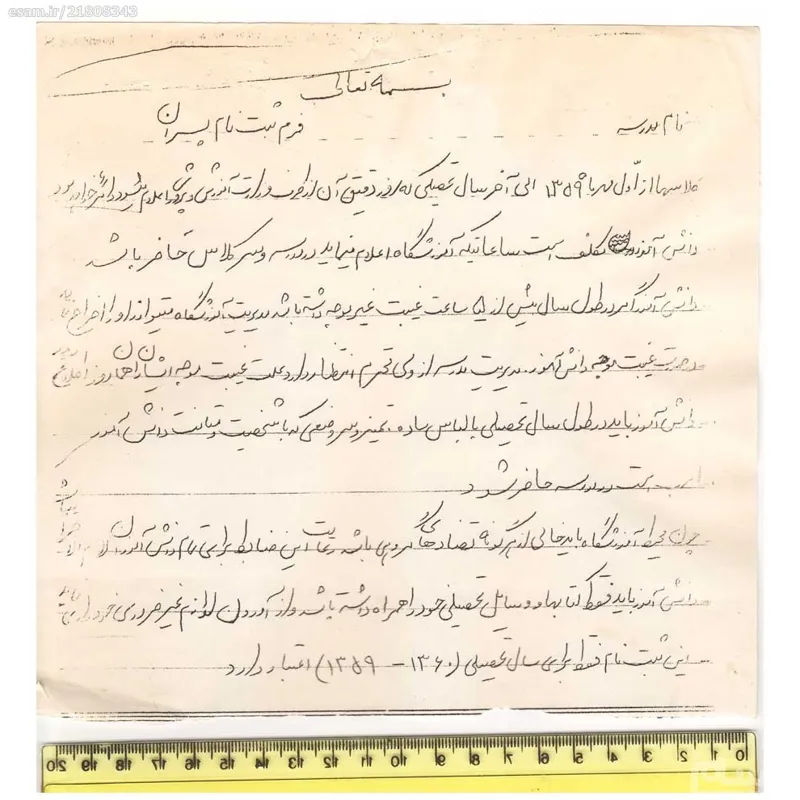 esam.ir/21808343
بسمه تعالی
نام مدرسه فرم ثبت نام پسران
کلاسها از اول مهرماه ۱۳۵۹ الی آخر سال تحصیلی که روز دقیق آن از طرف وزارت آموزش و پرورش اعلام میشود دائر خواهد بود
دانش آموز مکلف است ساعاتیکه آموزشگاه اعلام مینماید در مدرسه و سر کلاس حاضر باشد
دانش آموز اگر در طول سال بیش از ۵ ساعت غیبت غیر موجه داشته باشد مدیریت آموزشگاه میتواند او را اخراج نماید
در صورت غیبت موجه دانش آموز مدیریت مدرسه از ولی محترم انتظار دارد علت غیبت موجه ایشان را همان روز اطلاع
دانش آموز باید در طول سال تحصیلی با لباس ساده، تمیز و سر و وضعی که با شخصیت و متانت دانش آموز
است در مدرسه حاضر شود
چون محیط آموزشگاه باید خالی از هرگونه تضادهای گروهی باشد رعایت این ضابطه برای تمام دانش آموزان
دانش آموز باید فقط کتابها و وسایل تحصیلی خود را همراه داشته باشد و از آوردن لوازم غیر ضروری خودداری نماید
این ثبت نام فقط برای سال تحصیلی (۱۳۶۰ - ۱۳۵۹) اعتبار دارد
0 1 2 3 4 5 6 7 8 9 10 11 12 13 14 15 16 17 18 19 20